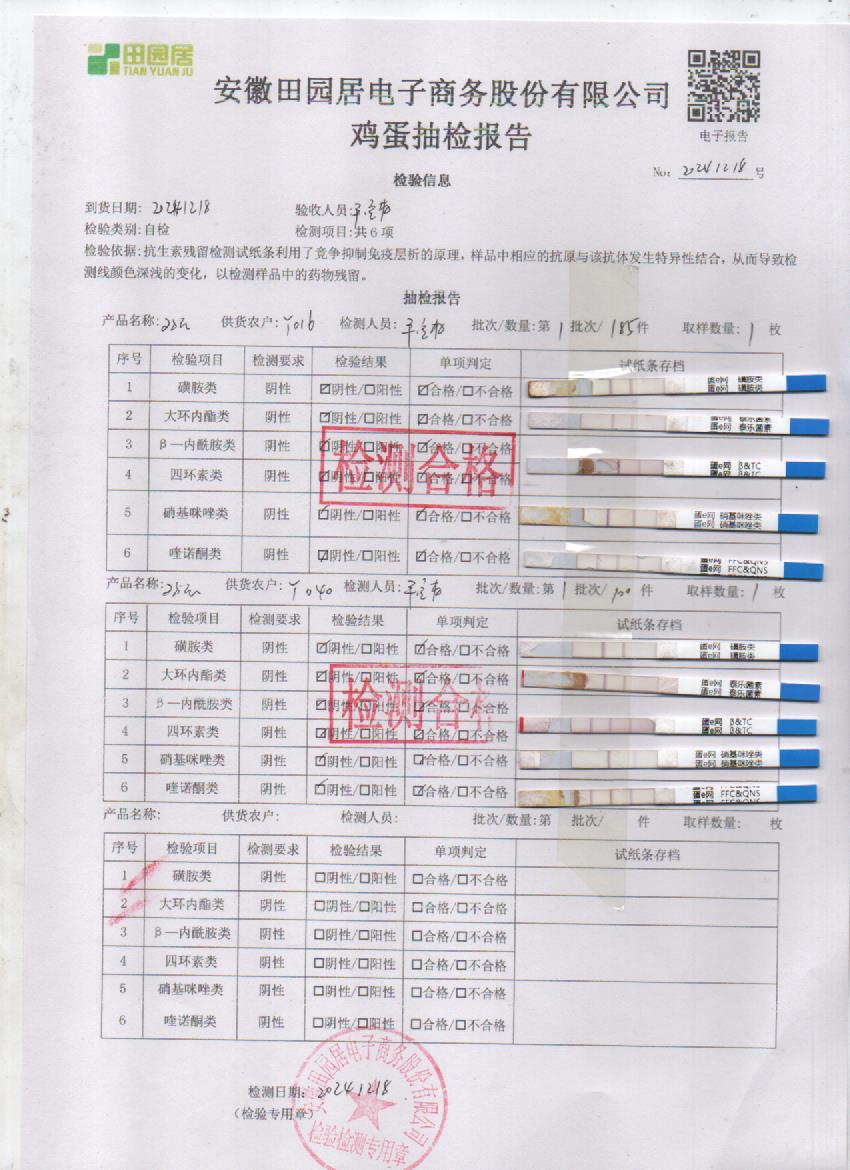 田园居
TIAN YUAN JU
安徽田园居电子商务股份有限公司
鸡蛋抽检报告
电子报告
No: 20241218 号
检验信息
到货日期: 20241218 验收人员:
检验类别:自检 检测项目:共6项
检验依据:抗生素残留检测试纸条利用了竞争抑制免疫层析的原理,样品中相应的抗原与该抗体发生特异性结合,从而导致检
测线颜色深浅的变化,以检测样品中的药物残留。
抽检报告
产品名称: 供货农户:Y016 检测人员: 批次/数量:第1批次/185件 取样数量:1枚
序号 检验项目 检测要求 检验结果 单项判定 试纸条存档
1 磺胺类 阴性 ☑阴性/□阳性 ☑合格/□不合格 蛋e网 磺胺类
蛋e网 磺胺类
2 大环内酯类 阴性 ☑阴性/□阳性 ☑合格/□不合格 蛋e网 泰乐菌素
蛋e网 泰乐菌素
3 β—内酰胺类 阴性 ☑阴性/□阳性 ☑合格/□不合格
检测合格
4 四环素类 阴性 ☑阴性/□阳性 ☑合格/□不合格 蛋e网 β&TC
蛋e网 β&TC
5 硝基咪唑类 阴性 ☑阴性/□阳性 ☑合格/□不合格 蛋e网 硝基咪唑类
蛋e网 硝基咪唑类
6 喹诺酮类 阴性 ☑阴性/□阳性 ☑合格/□不合格 蛋e网 FFC&QNS
蛋e网 FFC&QNS
产品名称: 供货农户:Y040 检测人员: 批次/数量:第1批次/ 件 取样数量:1枚
序号 检验项目 检测要求 检验结果 单项判定 试纸条存档
1 磺胺类 阴性 ☑阴性/□阳性 ☑合格/□不合格 蛋e网 磺胺类
蛋e网 磺胺类
2 大环内酯类 阴性 ☑阴性/□阳性 ☑合格/□不合格 蛋e网 泰乐菌素
蛋e网 泰乐菌素
3 β—内酰胺类 阴性 ☑阴性/□阳性 ☑合格/□不合格
检测合格
4 四环素类 阴性 ☑阴性/□阳性 ☑合格/□不合格 蛋e网 β&TC
蛋e网 β&TC
5 硝基咪唑类 阴性 ☑阴性/□阳性 ☑合格/□不合格 蛋e网 硝基咪唑类
蛋e网 硝基咪唑类
6 喹诺酮类 阴性 ☑阴性/□阳性 ☑合格/□不合格 蛋e网 FFC&QNS
蛋e网 FFC&QNS
产品名称: 供货农户: 检测人员: 批次/数量:第 批次/ 件 取样数量: 枚
序号 检验项目 检测要求 检验结果 单项判定 试纸条存档
1 磺胺类 阴性 □阴性/□阳性 □合格/□不合格
2 大环内酯类 阴性 □阴性/□阳性 □合格/□不合格
3 β—内酰胺类 阴性 □阴性/□阳性 □合格/□不合格
4 四环素类 阴性 □阴性/□阳性 □合格/□不合格
5 硝基咪唑类 阴性 □阴性/□阳性 □合格/□不合格
6 喹诺酮类 阴性 □阴性/□阳性 □合格/□不合格
检测日期: 20241218
(检验专用章)
安徽田园居电子商务股份有限公司
检验检测专用章